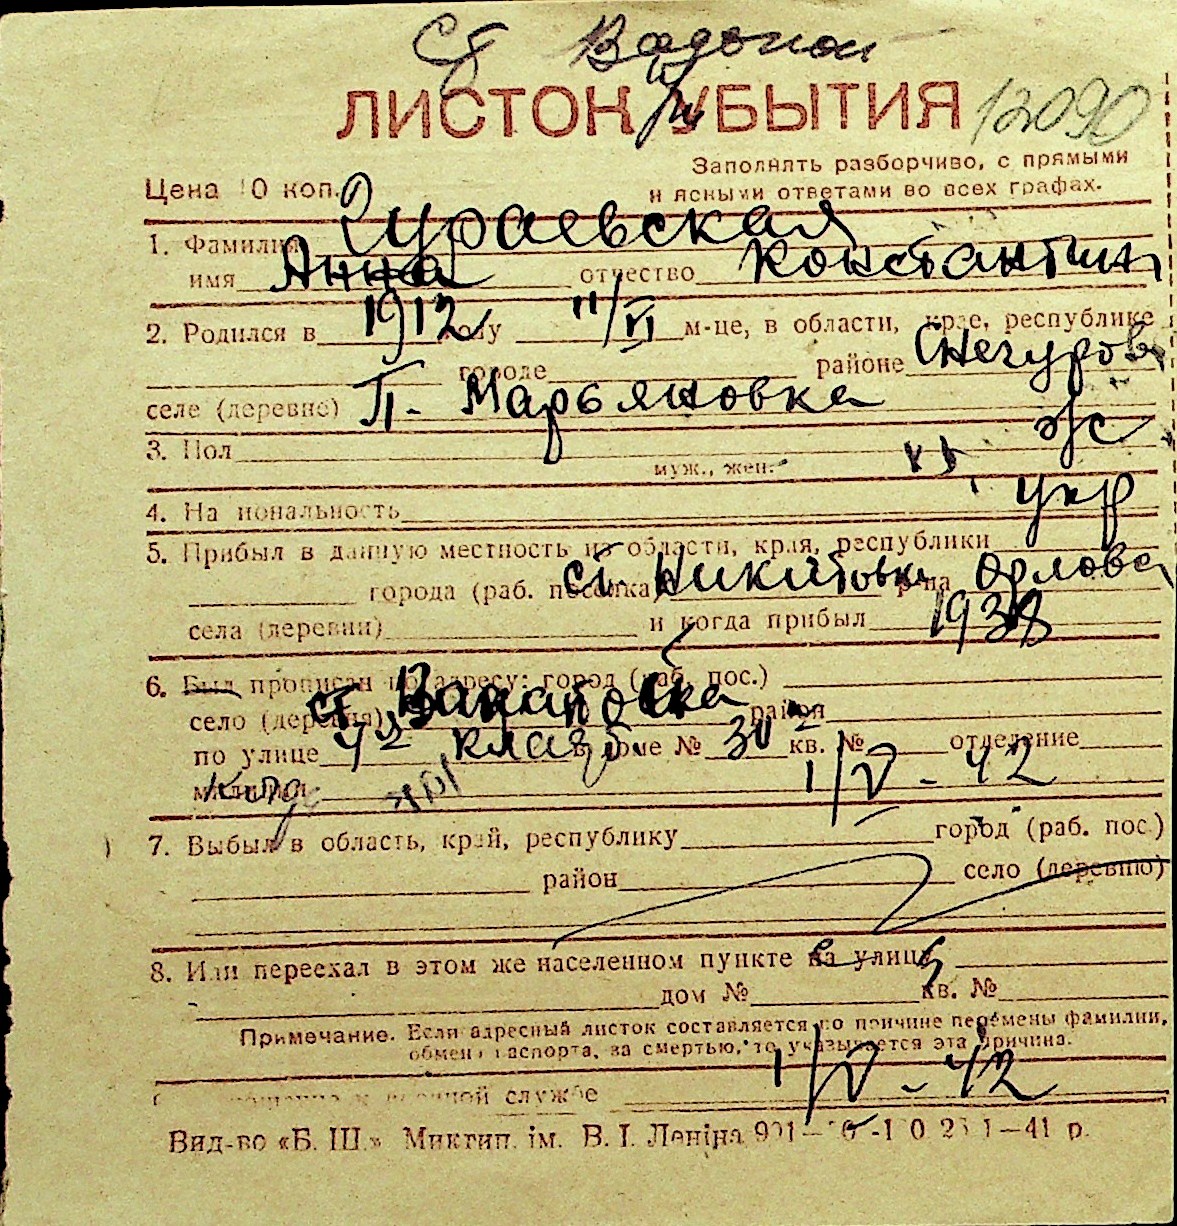 Ст
ЛИСТОК УБЫТИЯ 12090
Заполнять разборчиво, с прямыми
Цена 10 коп. и ясными ответами во всех графах.
1. Фамилия
имя Анна отчество Константин
2. Родился в 1912 году 11/VI м-це, в области, крае, республике
городе районе
селе (деревне) П. Марьяновка
3. Пол ж
муж., жен.
4. Национальность укр
5. Прибыл в данную местность из области, края, республики
города (раб. поселка) ст. Никитовка р-на Орловс
села (деревни) и когда прибыл 1938
6. Был прописан по адресу: город (раб. пос.)
село (деревня) ст район
по улице 42 в доме № 30 кв. № 2 отделение
милиции 1/V - 42
7. Выбыл в область, край, республику город (раб. пос.)
район село (деревню)
8. Или переехал в этом же населенном пункте на улицу
дом № кв. №
Примечание. Если адресный листок составляется по причине перемены фамилии,
обмена паспорта, за смертью, то указывается эта причина.
1/V - 42
военной службе
Вид-во «Б. Ш.» Миктип. ім. В. І. Леніна